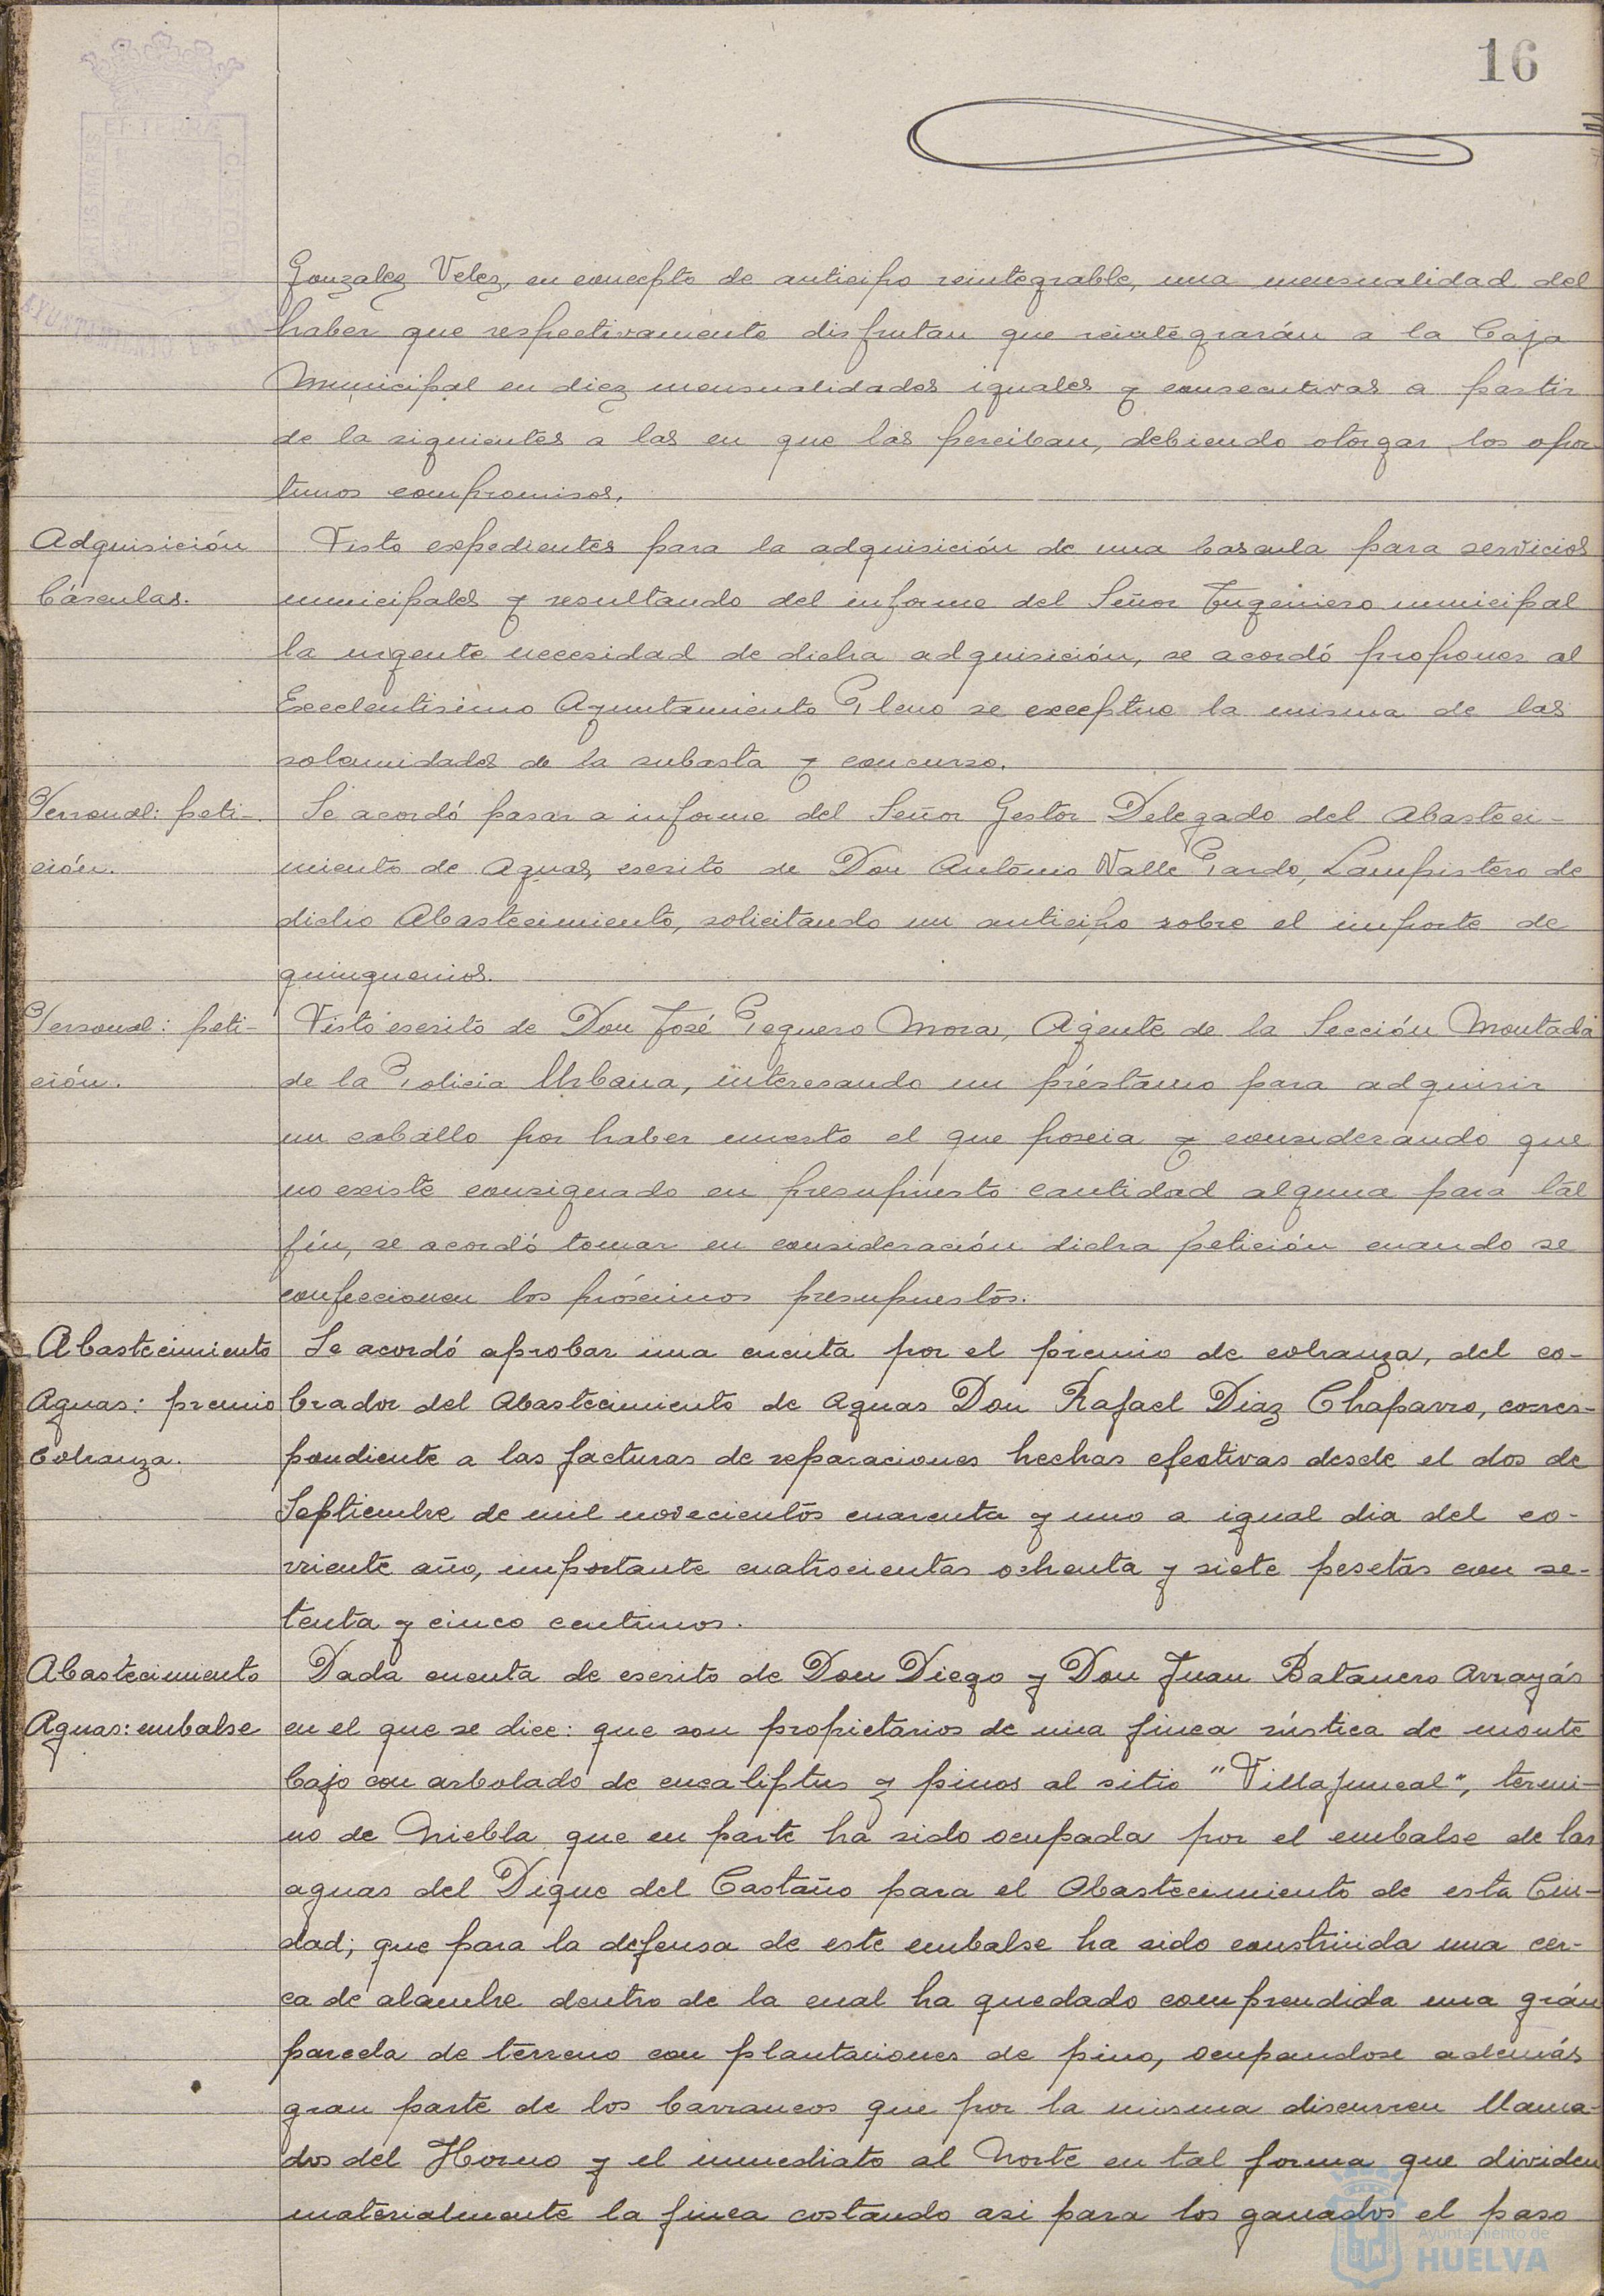 16
Gonzalez Velez, en concepto de anticipo reintegrable, una mensualidad del
haber que respectivamente disfrutan que reintegrarán a la Caja
Municipal en diez mensualidades iguales y consecutivas a partir
de la siguientes a las en que las perciban, debiendo otorgar los opor-
tunos compromisos.
Adquisición
Básculas.
Visto expedientes para la adquisición de una bascula para servicios
municipales y resultando del informe del Señor Ingeniero municipal
la urgente necesidad de dicha adquisición, se acordó proponer al
Excelentisimo Ayuntamiento Pleno se exceptue la misma de las
solemnidades de la subasta y concurso.
Personal: peti-
ción.
Se acordó pasar a informe del Señor Gestor Delegado del Abasteci-
miento de Aguas, escrito de Don Antonio Valle Pardo, Lampistero de
dicho Abastecimiento, solicitando un anticipo sobre el importe de
quinquenios.
Personal: peti-
ción.
Visto escrito de Don José Pequero Mora, Agente de la Sección Montada
de la Policia Urbana, interesando un préstamo para adquirir
un caballo por haber muerto el que poseia y considerando que
no existe consignado en presupuesto cantidad alguna para tal
fín, se acordó tomar en consideración dicha petición cuando se
confeccionen los próximos presupuestos.
Abastecimiento
Aguas: premio
Cobranza.
Se acordó aprobar una cuenta por el premio de cobranza, del co-
brador del Abastecimiento de Aguas Don Rafael Diaz Chaparro, corres-
pondiente a las facturas de reparaciones hechas efectivas desde el dos de
Septiembre de mil novecientos cuarenta y uno a igual dia del co-
rriente año, importante cuatrocientas ochenta y siete pesetas con se-
tenta y cinco centimos.
Abastecimiento
Aguas: embalse
Dada cuenta de escrito de Don Diego y Don Juan Batanero Arrayás
en el que se dice: que son propietarios de una finca rústica de monte
bajo con arbolado de eucaliptus y pinos al sitio "Villajuncal", termi-
no de Niebla que en parte ha sido ocupada por el embalse de las
aguas del Dique del Castaño para el Abastecimiento de esta Ciu-
dad; que para la defensa de este embalse ha sido construida una cer-
ca de alambre dentro de la cual ha quedado comprendida una grán
parcela de terreno con plantaciones de pino, ocupandose además
gran parte de los barrancos que por la misma discurren llama-
dos del Horno y el inmediato al Norte en tal forma que dividen
materialmente la finca costando asi para los ganados el paso
Ayuntamiento de
HUELVA